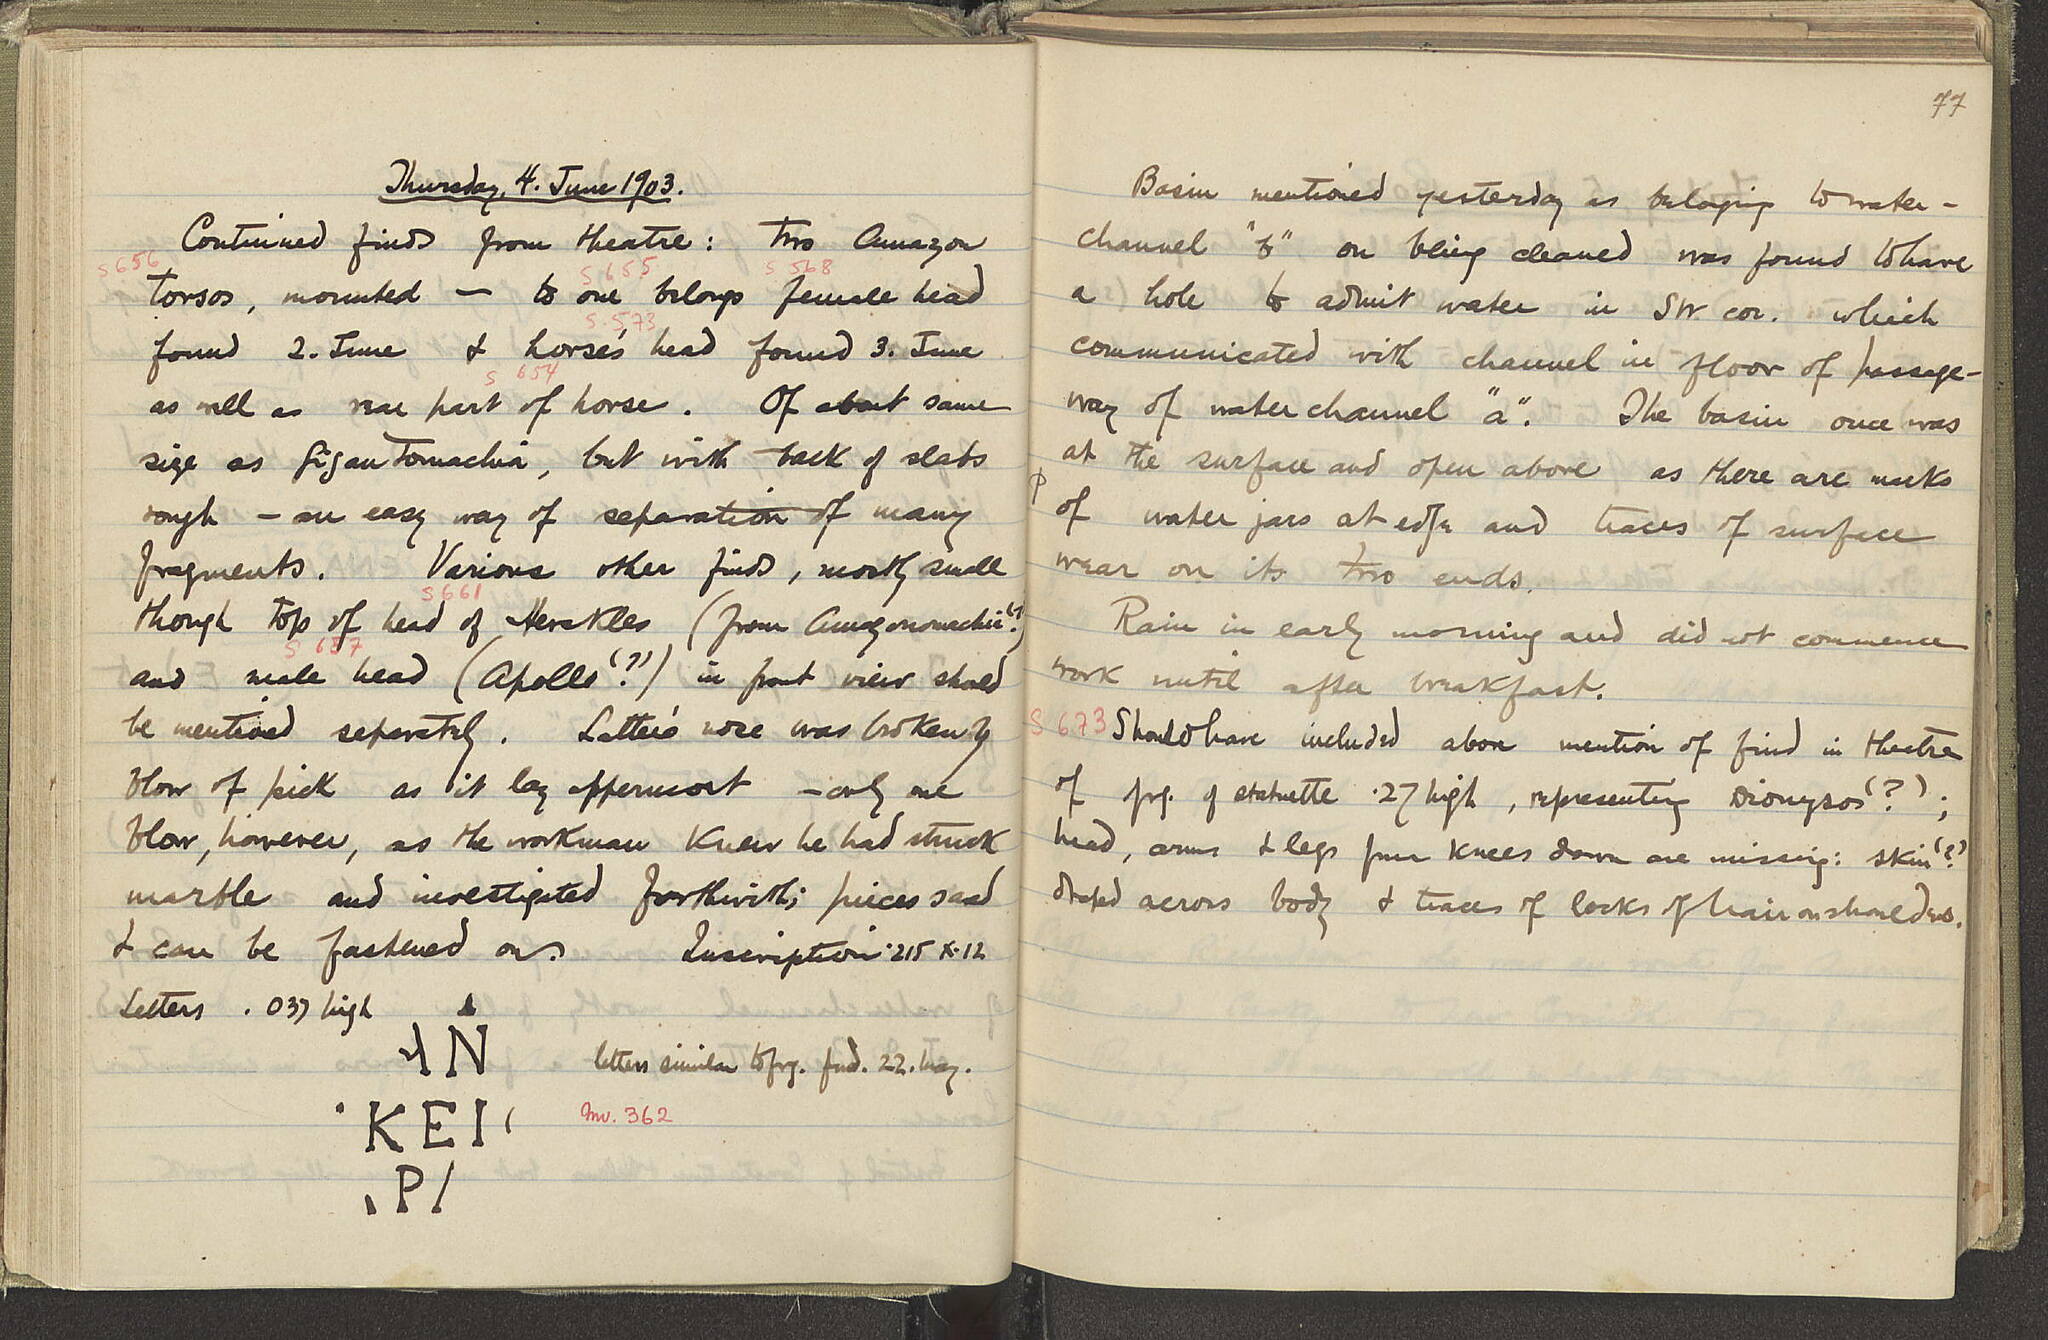 Thursday, 4. June 1903.
Continued finds from theatre: two Amazon
S 656 S 655 S 568
torsos, mounted — to one belongs female head
S. 573
found 2. June & horse's head found 3. June
S 654
as well as rear part of horse. Of about same
size as Gigantomachia, but with back of slabs
rough — an easy way of separation of many
fragments. Various other finds, mostly small
S 661
though top of head of Herakles (from Amazonomachia?)
S 657
and male head (Apollo(?)) in front view should
be mentioned separately. Latter's nose was broken by
blow of pick as it lay uppermost — only one
blow, however, as the workman knew he had struck
marble and investigated forthwith; pieces saved
& can be fastened on. Inscription .215 x .12
Letters .037 high
N letters similar to frg. fnd. 22. May.
KEI Inv. 362
P
77
Basin mentioned yesterday as belonging to water-
channel "b" on being cleaned was found to have
a hole to admit water in SW cor. which
communicated with channel in floor of passage-
way of water channel "a". The basin once was
at the surface and open above as there are marks
φ
of water jars at edge and traces of surface
wear on its two ends.
Rain in early morning and did not commence
work until after breakfast.
S 673 Should have included above mention of find in theatre
of frg. of statuette .27 high, representing Dionysos(?);
head, arms & legs from knees down are missing: skin(?)
draped across body & traces of locks of hair on shoulders.